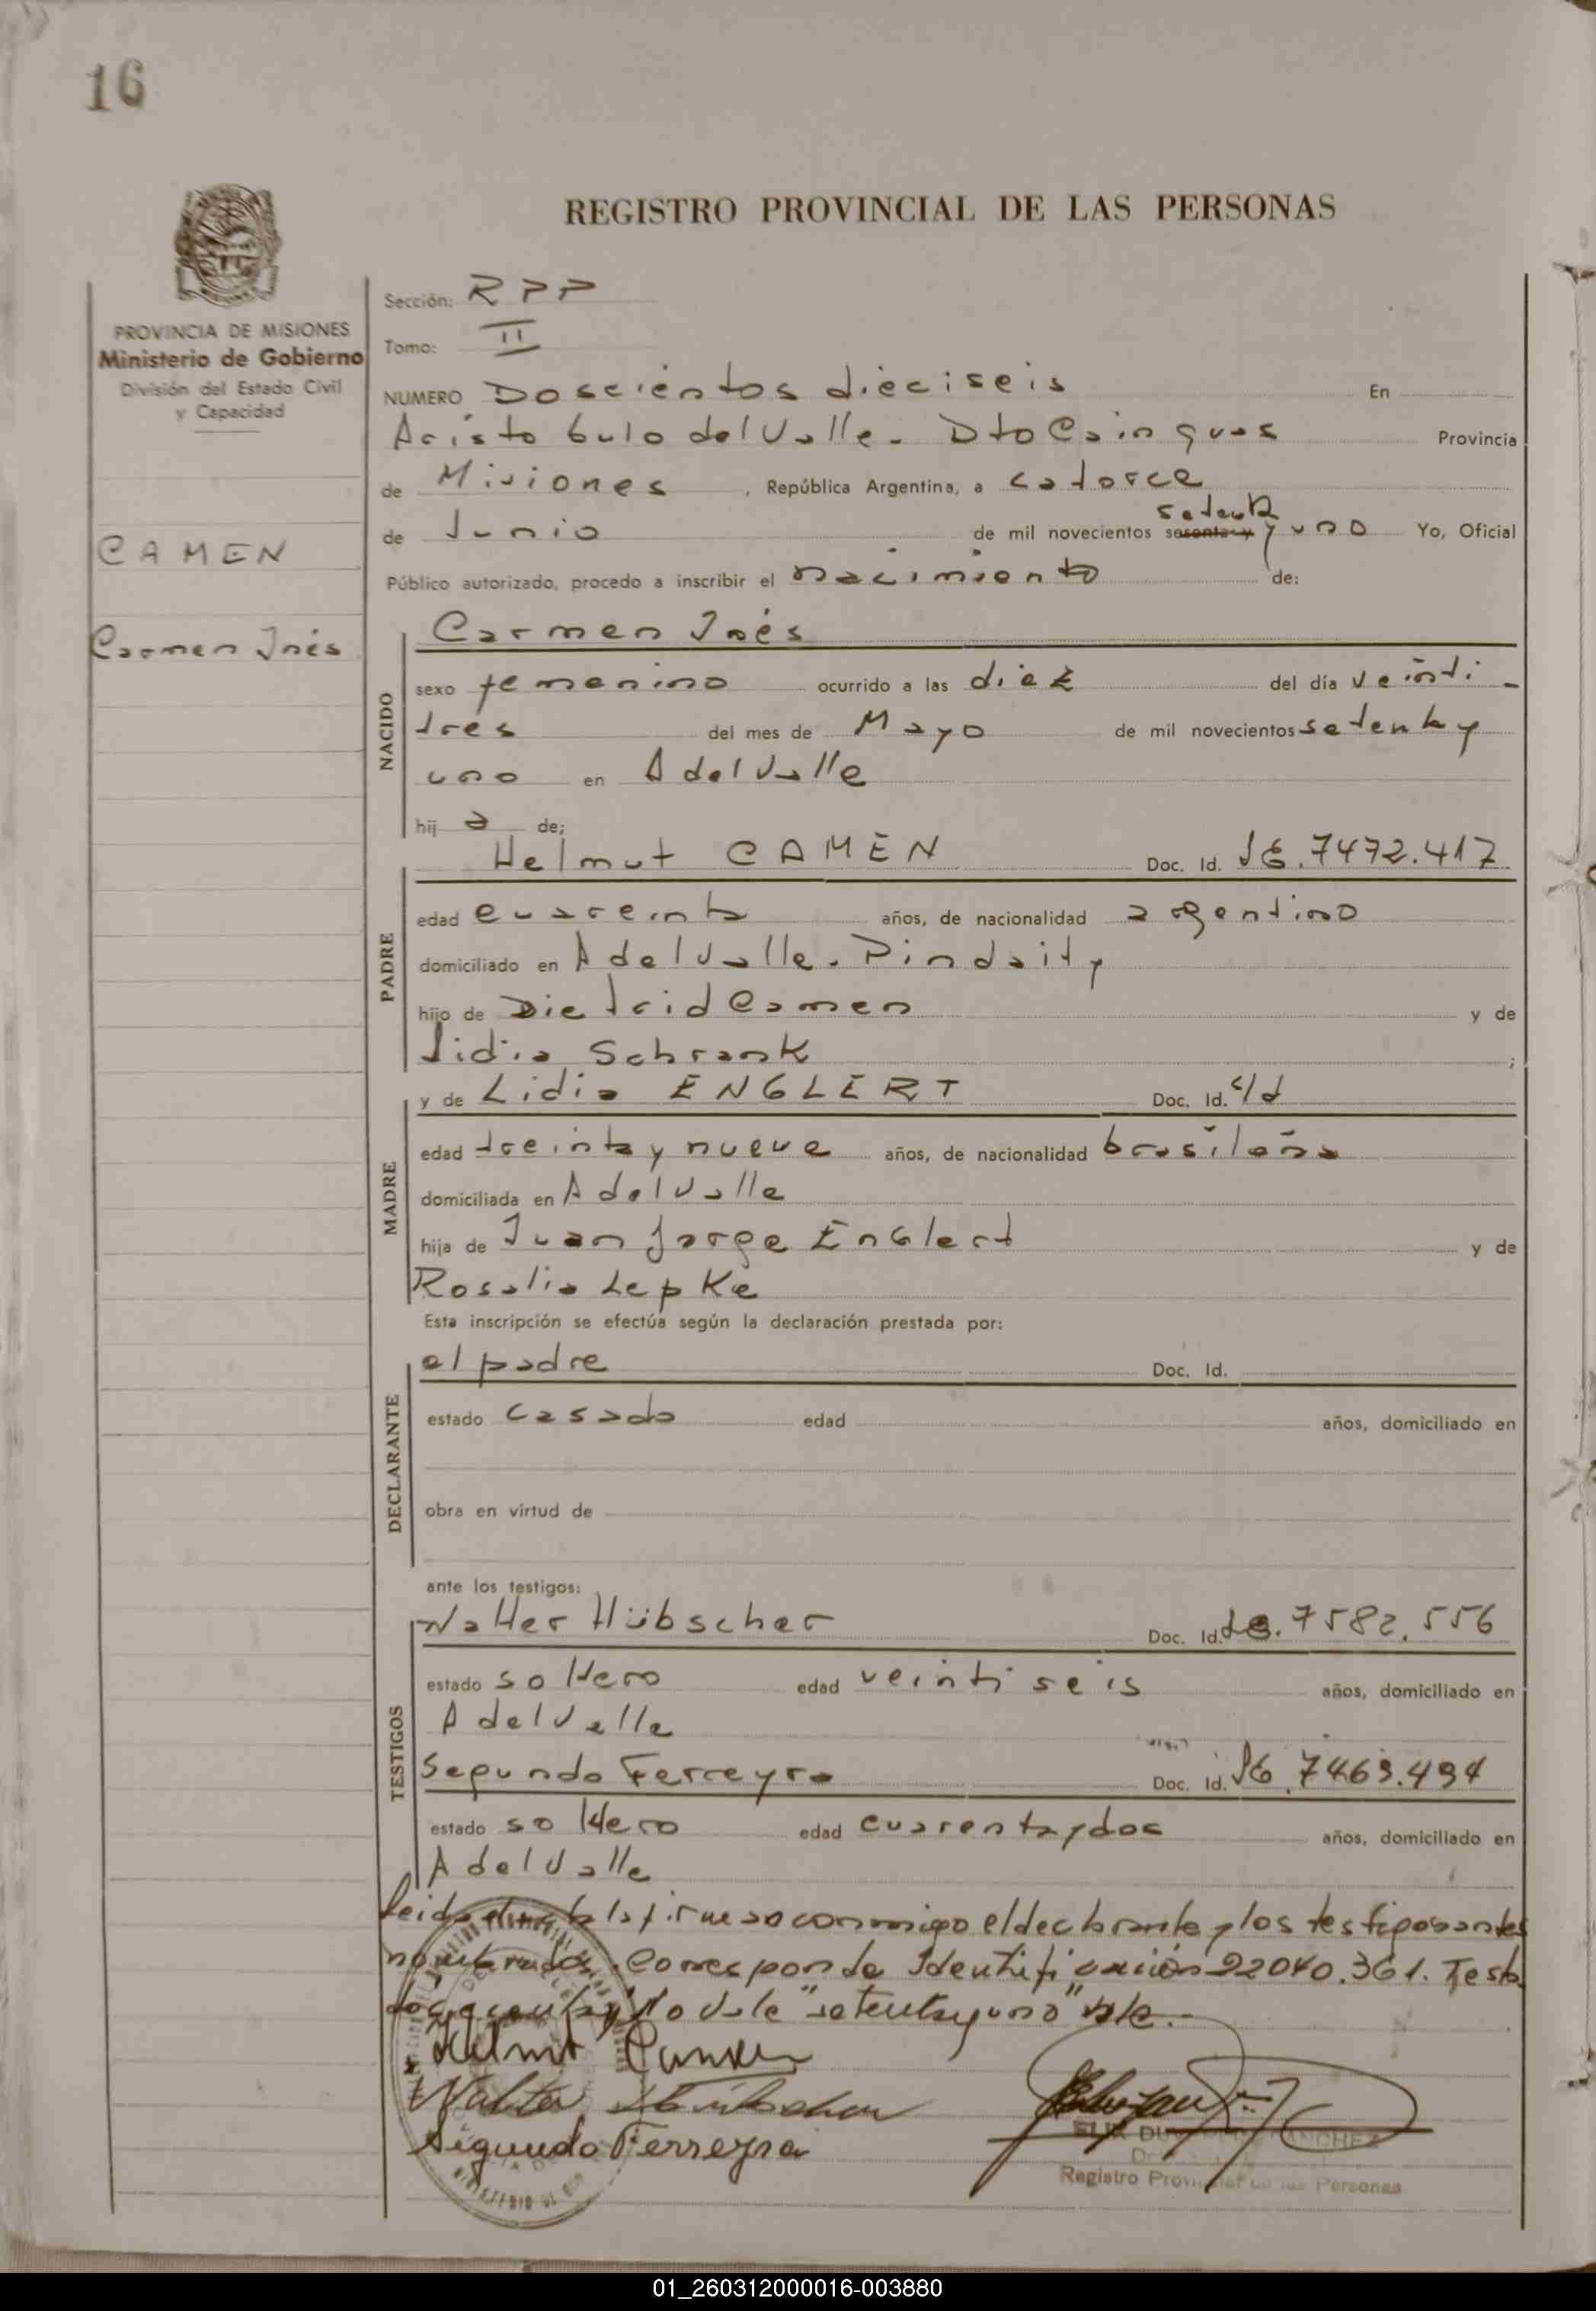 16
REGISTRO PROVINCIAL DE LAS PERSONAS
PROVINCIA DE MISIONES
Ministerio de Gobierno
División del Estado Civil
y Capacidad
CAMEN
Carmen Inés
Sección: RPP
Tomo: II
NUMERO Doscientos dieciseis En
Aristobulo del Valle. Dto Cainguas Provincia
de Misiones, República Argentina, a catorce
setenta
de Junio de mil novecientos sesenta y y uno Yo, Oficial
Público autorizado, procedo a inscribir el nacimiento de:
NACIDO
Carmen Inés
sexo femenino ocurrido a las diez del día veinti-
tres del mes de Mayo de mil novecientos setenta y
uno en A del Valle
hij a de:
PADRE
Helmut CAMEN Doc. Id. 7472.417
edad cuareinta años, de nacionalidad argentino
domiciliado en A del Valle. Pindaity
hijo de Dietrid Camen y de
Lidia Schrank ;
MADRE
y de Lidia ENGLERT Doc. Id. s/d
edad treinta y nueve años, de nacionalidad brasileña
domiciliada en A del Valle
hija de Juan Jorge Englert y de
Rosalia Lepke
Esta inscripción se efectúa según la declaración prestada por:
DECLARANTE
el padre Doc. Id.
estado casado edad años, domiciliado en
obra en virtud de
ante los testigos:
TESTIGOS
Walter Hübscher Doc. Id. 7582.556
estado soltero edad veintiseis años, domiciliado en
A del Valle
Segundo Ferreyra Doc. Id. 7469.494
estado soltero edad cuarenta y dos años, domiciliado en
A del Valle
Leida el acta la firman conmigo el declarante y los testigos antes
nombrados. Corresponde Identificación 22040.361. Testa
do no vale "setenta y uno" vale.-
Helmut Camen
Walter Hübscher
Segundo Ferreyra
Registro Provincial de las Personas
01_260312000016-003880